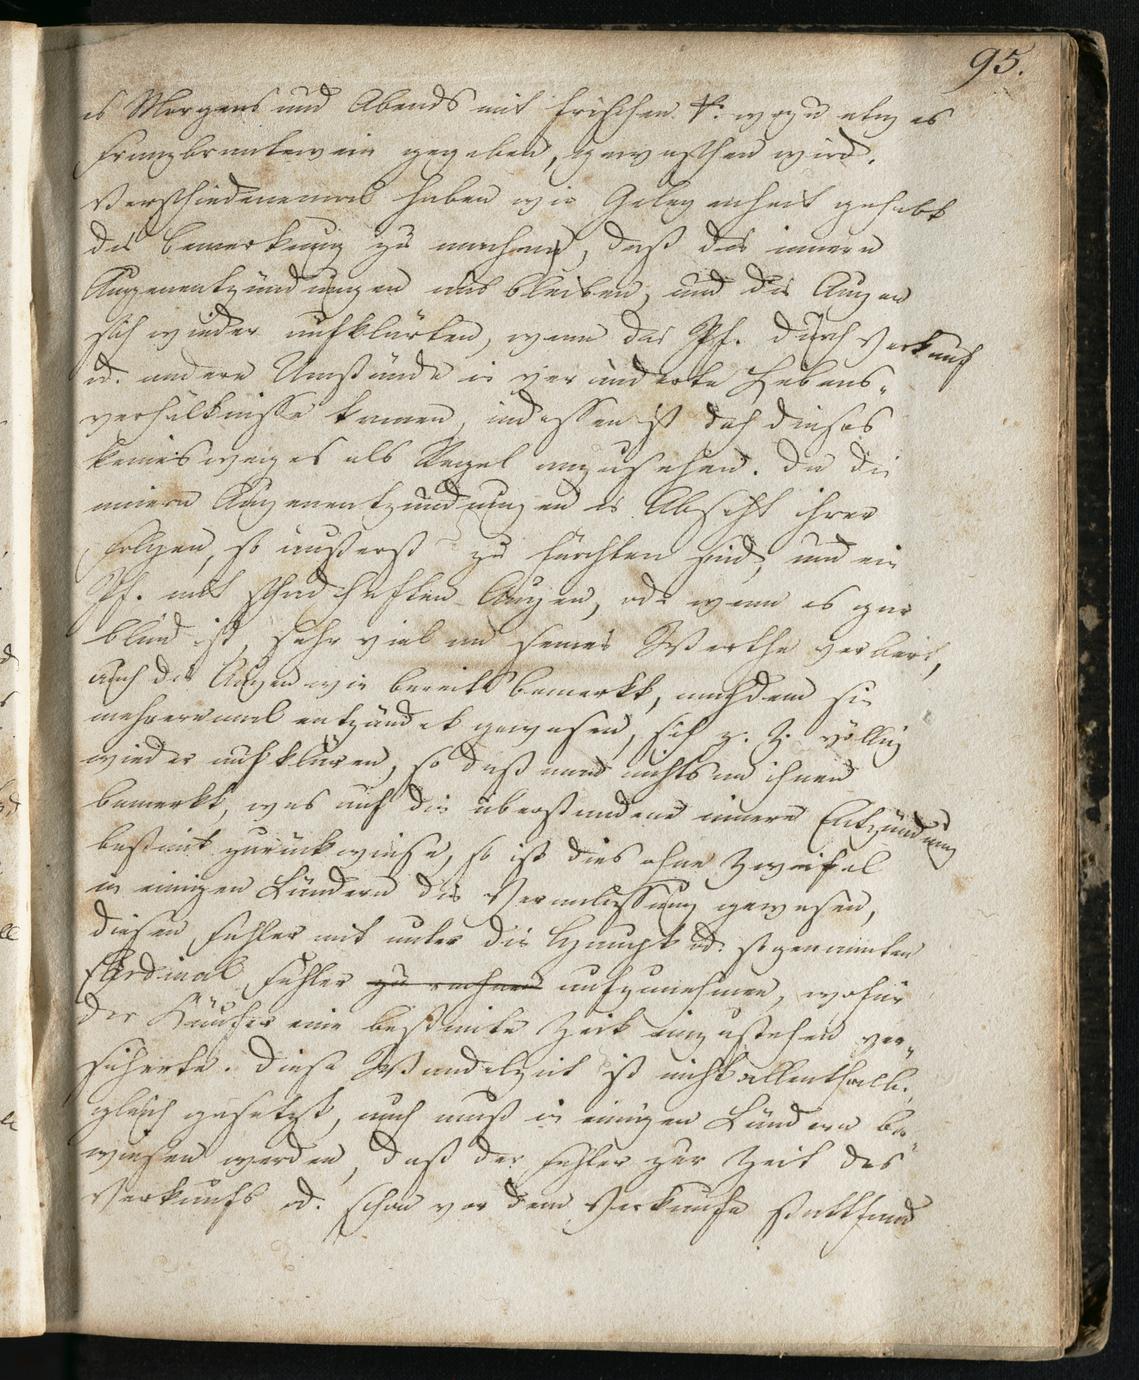 95.
es Morgens und Abends mit frischen ▽. wozu etwas
Franzbrantewein gegeben, gewaschen wird.
Verschiedenemal haben wir Gelegenheit gehabt
die Bemerkung zu machen, daß die innern
Augenentzündungen aus bleiben, und die Augen
sich wieder aufklärten, wenn das Pf. durch Verkauf
od. andere Umstände in veränderte Lebens-
verhältnisse kamen, indessen ist doch dieses
keinesweges als Regel anzusehen. Da die
innern Augenentzündungen in Absicht ihrer
Folgen, so äußerst zu fürchten sind, und ein
Pf. mit schadhaften Augen, oder wenn es gar
blind ist, sehr viel an seinem Werthe verliert,
auch die Augen wie bereits bemerkt, nachdem sie
mehreremal entzündet gewesen, sich z. Z. völlig
wieder aufklären, so daß man nichts an ihnen
bemerkt, was auf die überstandene innere Entzündung
bestimt zurückwiese, so ist dies ohne Zweifel
in einigen Ländern die Veranlassung gewesen,
diesen Fehler mit unter die Haupt od. sogenannten
Cardinal Fehler zu rechnen aufzunehmen, wofür
der Käufer eine bestimte Zeit einzustehen ver-
sicherte. Diese Wandelzeit ist nicht allenthalb.
gleich gesetzt, auch muß in einigen Ländern be-
wiesen werden, daß der Fehler zur Zeit des
Verkaufs od. schon vor dem Verkaufe stattfand